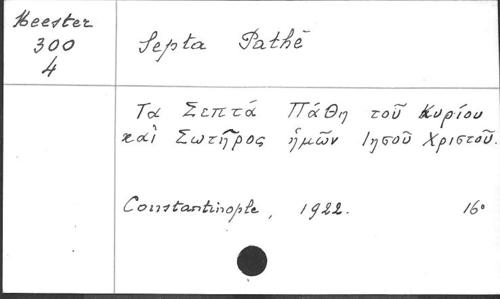 Meester
300
4
Septa Pathē
Τα Σεπτά Πάθη τοῦ Κυρίου
καὶ Σωτῆρος ἡμῶν Ιησοῦ Χριστοῦ.
Constantinople, 1922. 16°